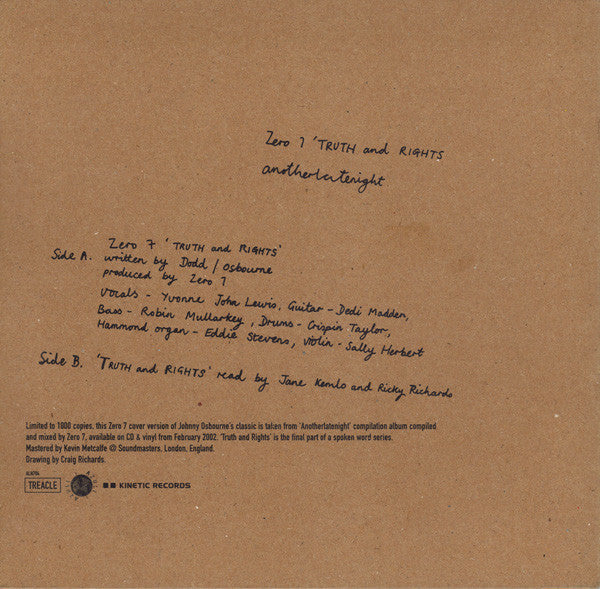 Zero 7 'TRUTH and RIGHTS
anotherlatenight
Zero 7 'TRUTH and RIGHTS'
Side A. written by Dodd / Osbourne
produced by Zero 7
Vocals - Yvonne John Lewis, Guitar - Dedi Madden,
Bass - Robin Mullarkey, Drums - Crispin Taylor,
Hammond organ - Eddie Stevens, Violin - Sally Herbert
Side B. 'TRUTH and RIGHTS' read by Jane Kemlo and Ricky Richards
Limited to 1000 copies, this Zero 7 cover version of Johnny Osbourne's classic is taken from 'Anotherlatenight' compilation album compiled
and mixed by Zero 7, available on CD & vinyl from February 2002. 'Truth and Rights' is the final part of a spoken word series.
Mastered by Kevin Metcalfe @ Soundmasters, London, England.
Drawing by Craig Richards.
TREACLE
KINETIC RECORDS